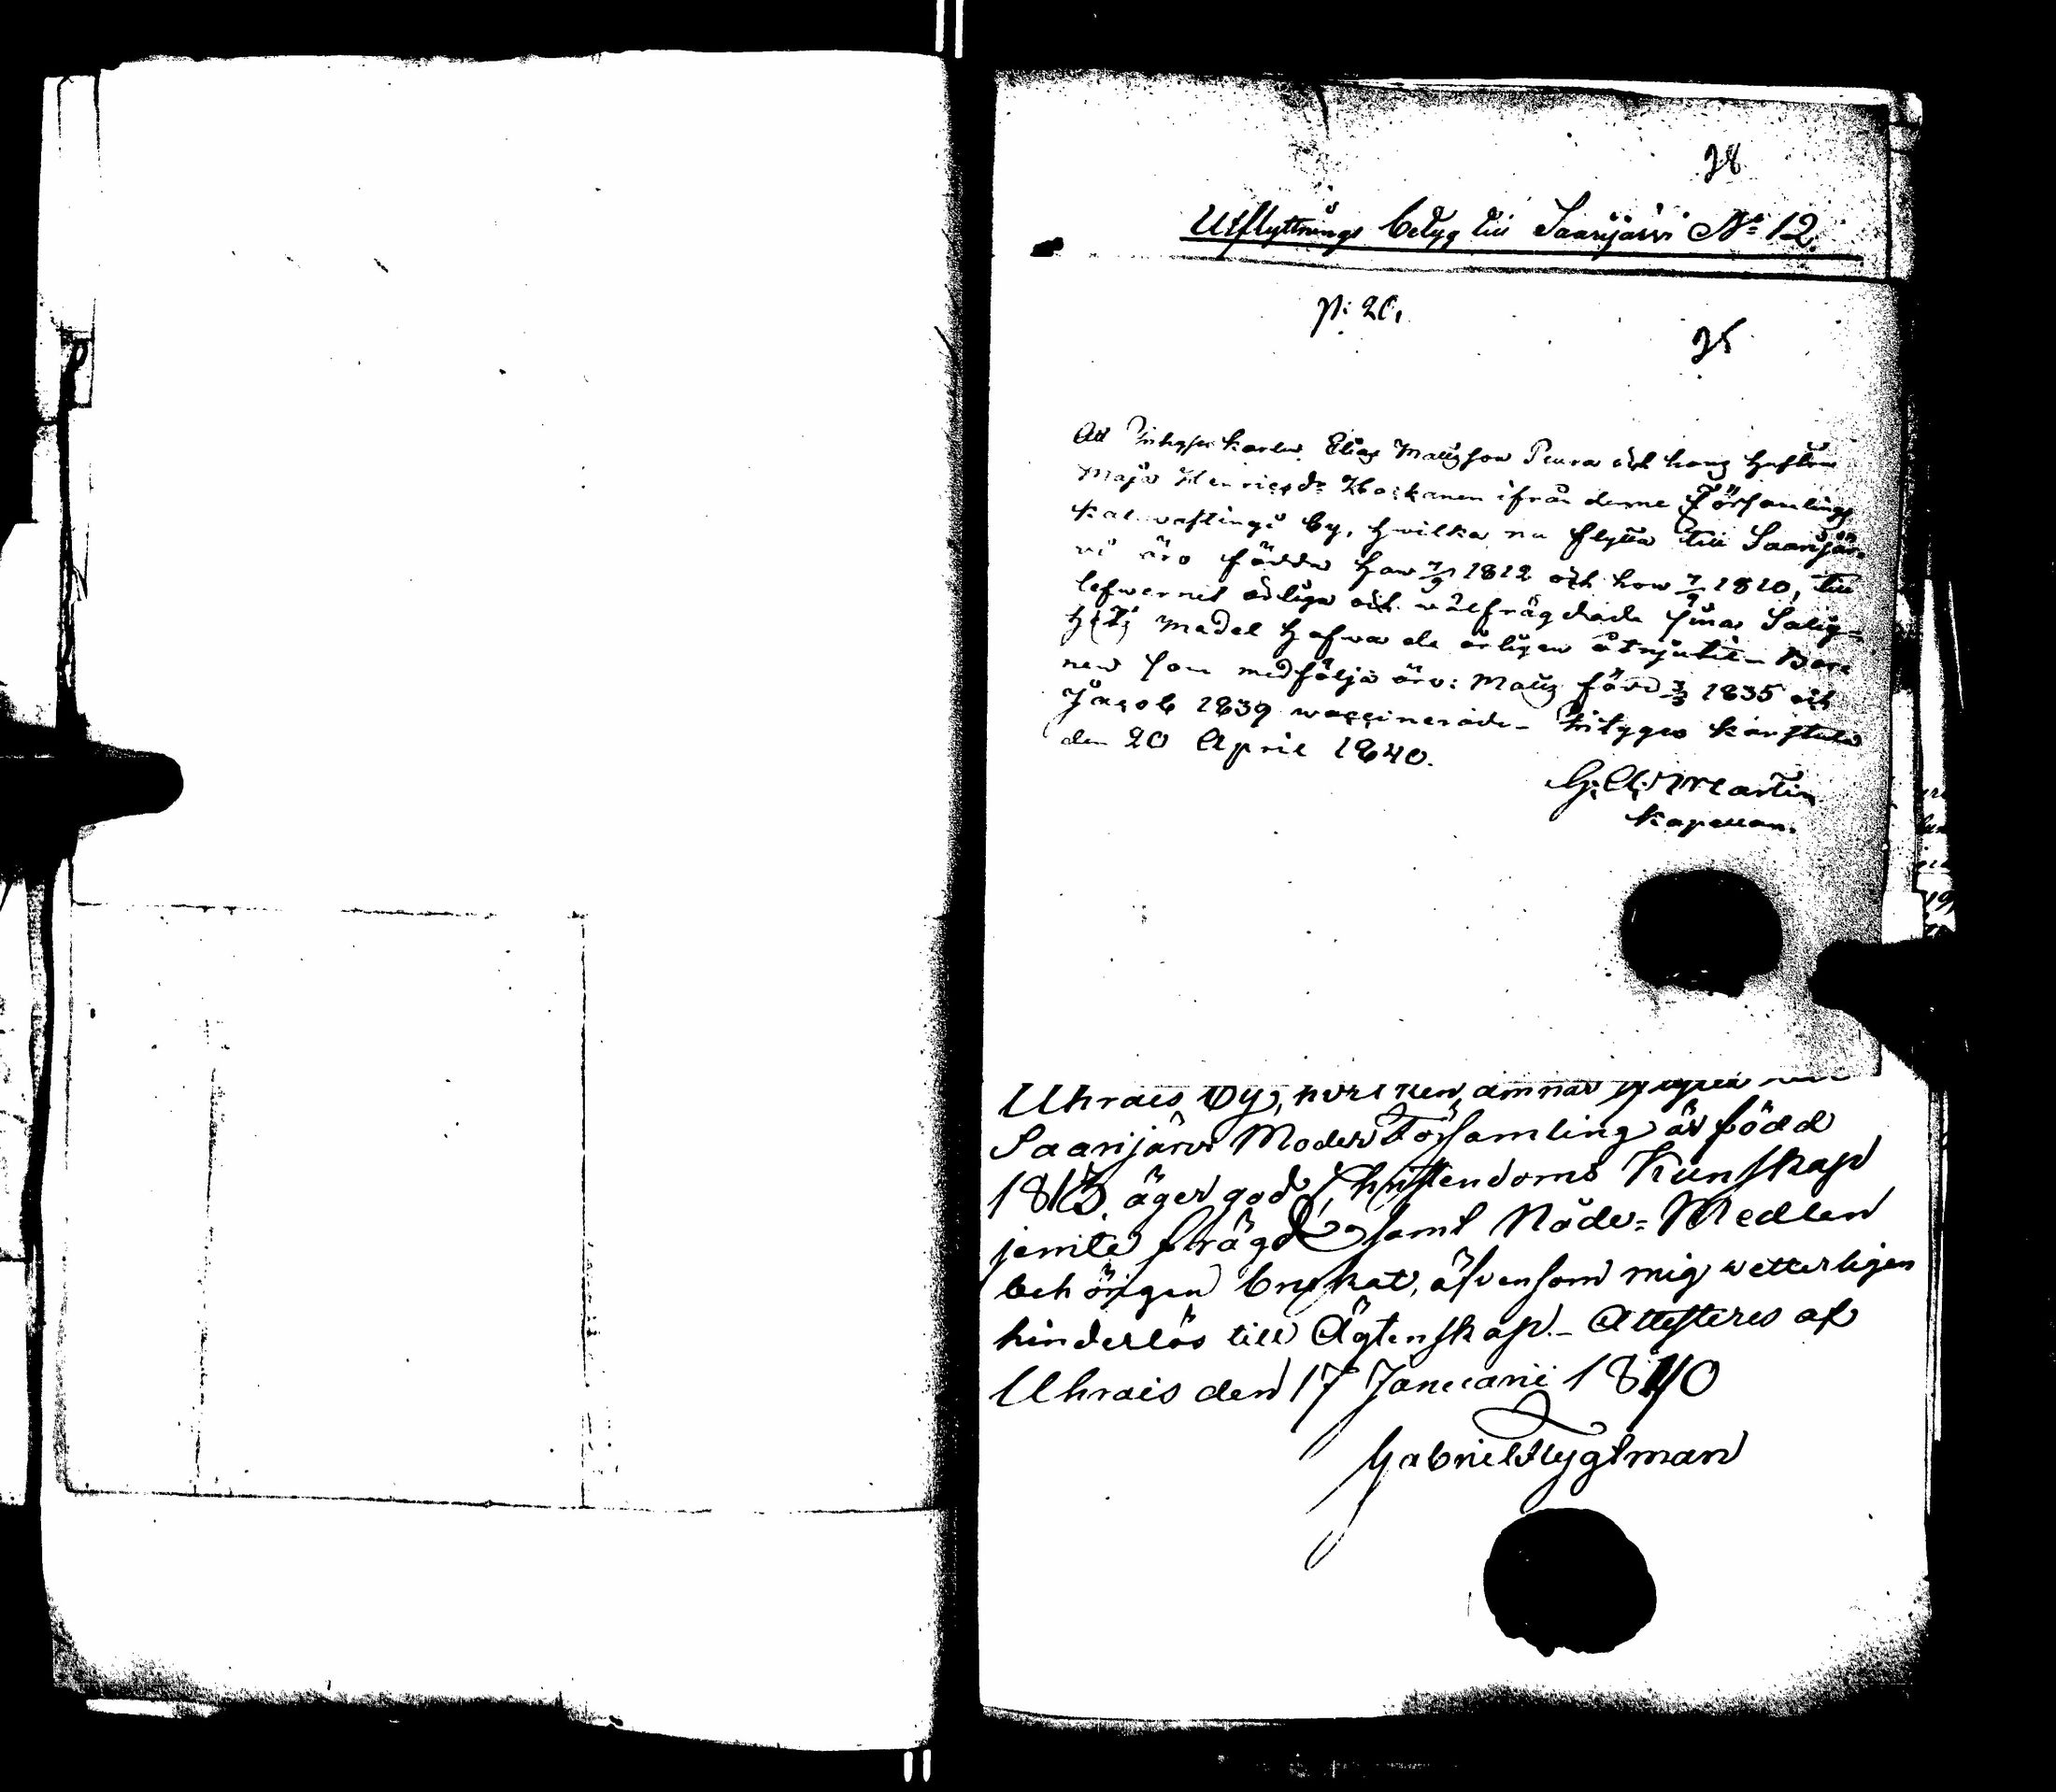 28
Utflyttnings betyg till Saarijärvi No 12.
p: 20,
25
Att Inhyses karlen Elias Matsson Peura och hans hustru
Maja Henricsdr Hoskanen ifrån denne Församlings
by, hwilka nu flytta till Saarijär-
vi äro födde han 7/9 1812 och hon 7/9 1810, till
lefwernet ärliga och wälfrägdade sina Salig-
hets medel hafwa de årligen åtnjutit. Bar-
nen som medfölja äro: Mats född 3/3 1835 och
Jacob 1839 waccinerade. bitygges Karstula
den 20 April 1840.
G. A. Martin
Kapellan.
Uhrais by, hvilken ämnar flytta
Saarijärvi Moder Församling är född
1813, äger god Christendoms Kunskap
jemte frägd samt Nåde-Medlen
behörigen brukat, äfvensom mig wetterligen
hinderlös till Ägtenskap. Attesteres af
Uhrais den 17 Januarii 1840
Gabriel Flygtman